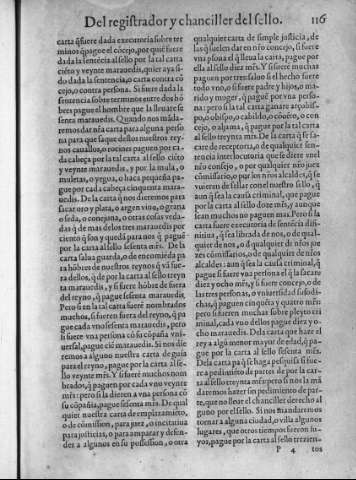 Del registrador y chanciller del sello. 116
carta q̃ fuere dada executoria sobre ter
minos q̃ pague el cõcejo, por quiẽ fuere
dada la sentẽcia al sello por la tal carta
ciẽto y veynte marauedis, quier aya si-
do dada la sentencia, o carta contra cõ
cejo, o contra persona. Si fuere dada la
sentencia sobre terminos entre dos hõ
bres pague el hombre que la lleuare se
senta marauedis. Quando nos mãda-
remos dar nr̃a carta para alguna perso
na para que saque destos nuestros reynos
cauallos, o rocines paguen por ca
da cabeça por la tal carta al sello ciẽto
y veynte marauedis, y por la mula, o
muletas, o yegua, o haca pequeña pa-
gue por cada cabeça cinquenta mara-
uedis. De la carta q̃ nos dieremos para
sacar oro y plata, o argen viuo, o grana
o seda, o conejuna, o otras cosas veda-
das q̃ de mas delos tres marauedis por
ciento q̃ son y quedã para nos q̃ pague
por la carta al sello sesenta mr̃s. De la
carta salua guarda, o de encomiẽda pa
ra hõbres de nuestros reynos q̃ vã fue-
ra dellos, q̃ de por la carta al sello treyn
ta marauedis, y si fuere hõbre de fuera
del reyno, q̃ pague sesenta marauedis.
Pero si en la tal carta fuerẽ nombrados
muchos, si fueren fuera del reyno, q̃ pa
gue cada vno sesenta marauedis, pero
si fuere vna persona cõ su cõpañia vni-
uersal, pague ciẽ marauedis. Si nos die
remos a alguno nuestra carta de guia
para el reyno, pague por la carta al se-
llo veynte mr̃s. Y si fuerẽ muchos nom
brados, q̃ paguen por cada vno veynte
mr̃s: pero si la dieren a vna persona cõ
su cõpañia, pague sesenta mr̃s. De qual
quier nuestra carta de emplazamiẽto,
o de comission, para juez, o incitatiua
para justicias, o para amparar y defen-
der a algunos en su possession, o otra
qualquier carta de simple justicia, de
las q̃ suelen dar en nr̃o consejo, si fuere
vna psona el q̃ lleua la carta, pague por
ella al sello diez mr̃s. Y si fuerẽ muchas
paguen por tres saluo si el hecho fuere
todo vno, o si fuere padre y hijo, o ma-
rido y muger, q̃ paguẽ por vna perso-
na: pero si la tal carta ganare arçobis-
po, o obispo, o cabildo, o cõuẽto, o con
cejo, o aljama, q̃ pague por la tal carta
al sello treynta mr̃s. De la carta q̃ se sa-
care de receptoria, o de qualquier sen-
tencia interlocutoria que se diere enel
nr̃o consejo, o por qualquier nr̃o juez
comissario, o por los nr̃os alcaldes, q̃ se
vuieren de sellar con el nuestro sello, q̃
aun q̃ sea la causa criminal, que pague
por la carta al sello doze mr̃s, y aunque
sean muchos no paguen mas. Pero si la
carta fuere executoria de sentẽcia difi-
nitiua, q̃ sea librada de nos, o de qual-
quier de nos, o de qualquier de nr̃os jue
zes comissarios, o de qualquier de nr̃os
alcaldes: aun q̃ sea la causa criminal, q̃
pague si fuere vna persona el q̃ la sacare
diez y ocho mr̃s, y si fuere concejo, o de
tres personas, o vniuersidad susodi-
chas, q̃ paguen cinquẽta y quatro mr̃s
pero si fueren muchos sobre pleyto cri
minal, cada vno dellos pague diez y o-
cho marauedis. De la carta que haze el
rey a algũ menor mayor de edad, q̃ pa-
gue por la carta al sello sesenta mr̃s.
De la carta pa q̃ se haga pesquisa si fue-
re a pedimiento de partes de por la car-
ta al sello treynta mr̃s: pero si nos la mã
daremos hazer sin pedimiento de par-
te, que no lleue el chanciller derecho al
guno por el sello. Si nos mandaremos
tornar a alguna ciudad, o villa algunos
lugares, que otros tiempos fueron su-
yos, pague por la carta al sello trezien-
P 4 tos